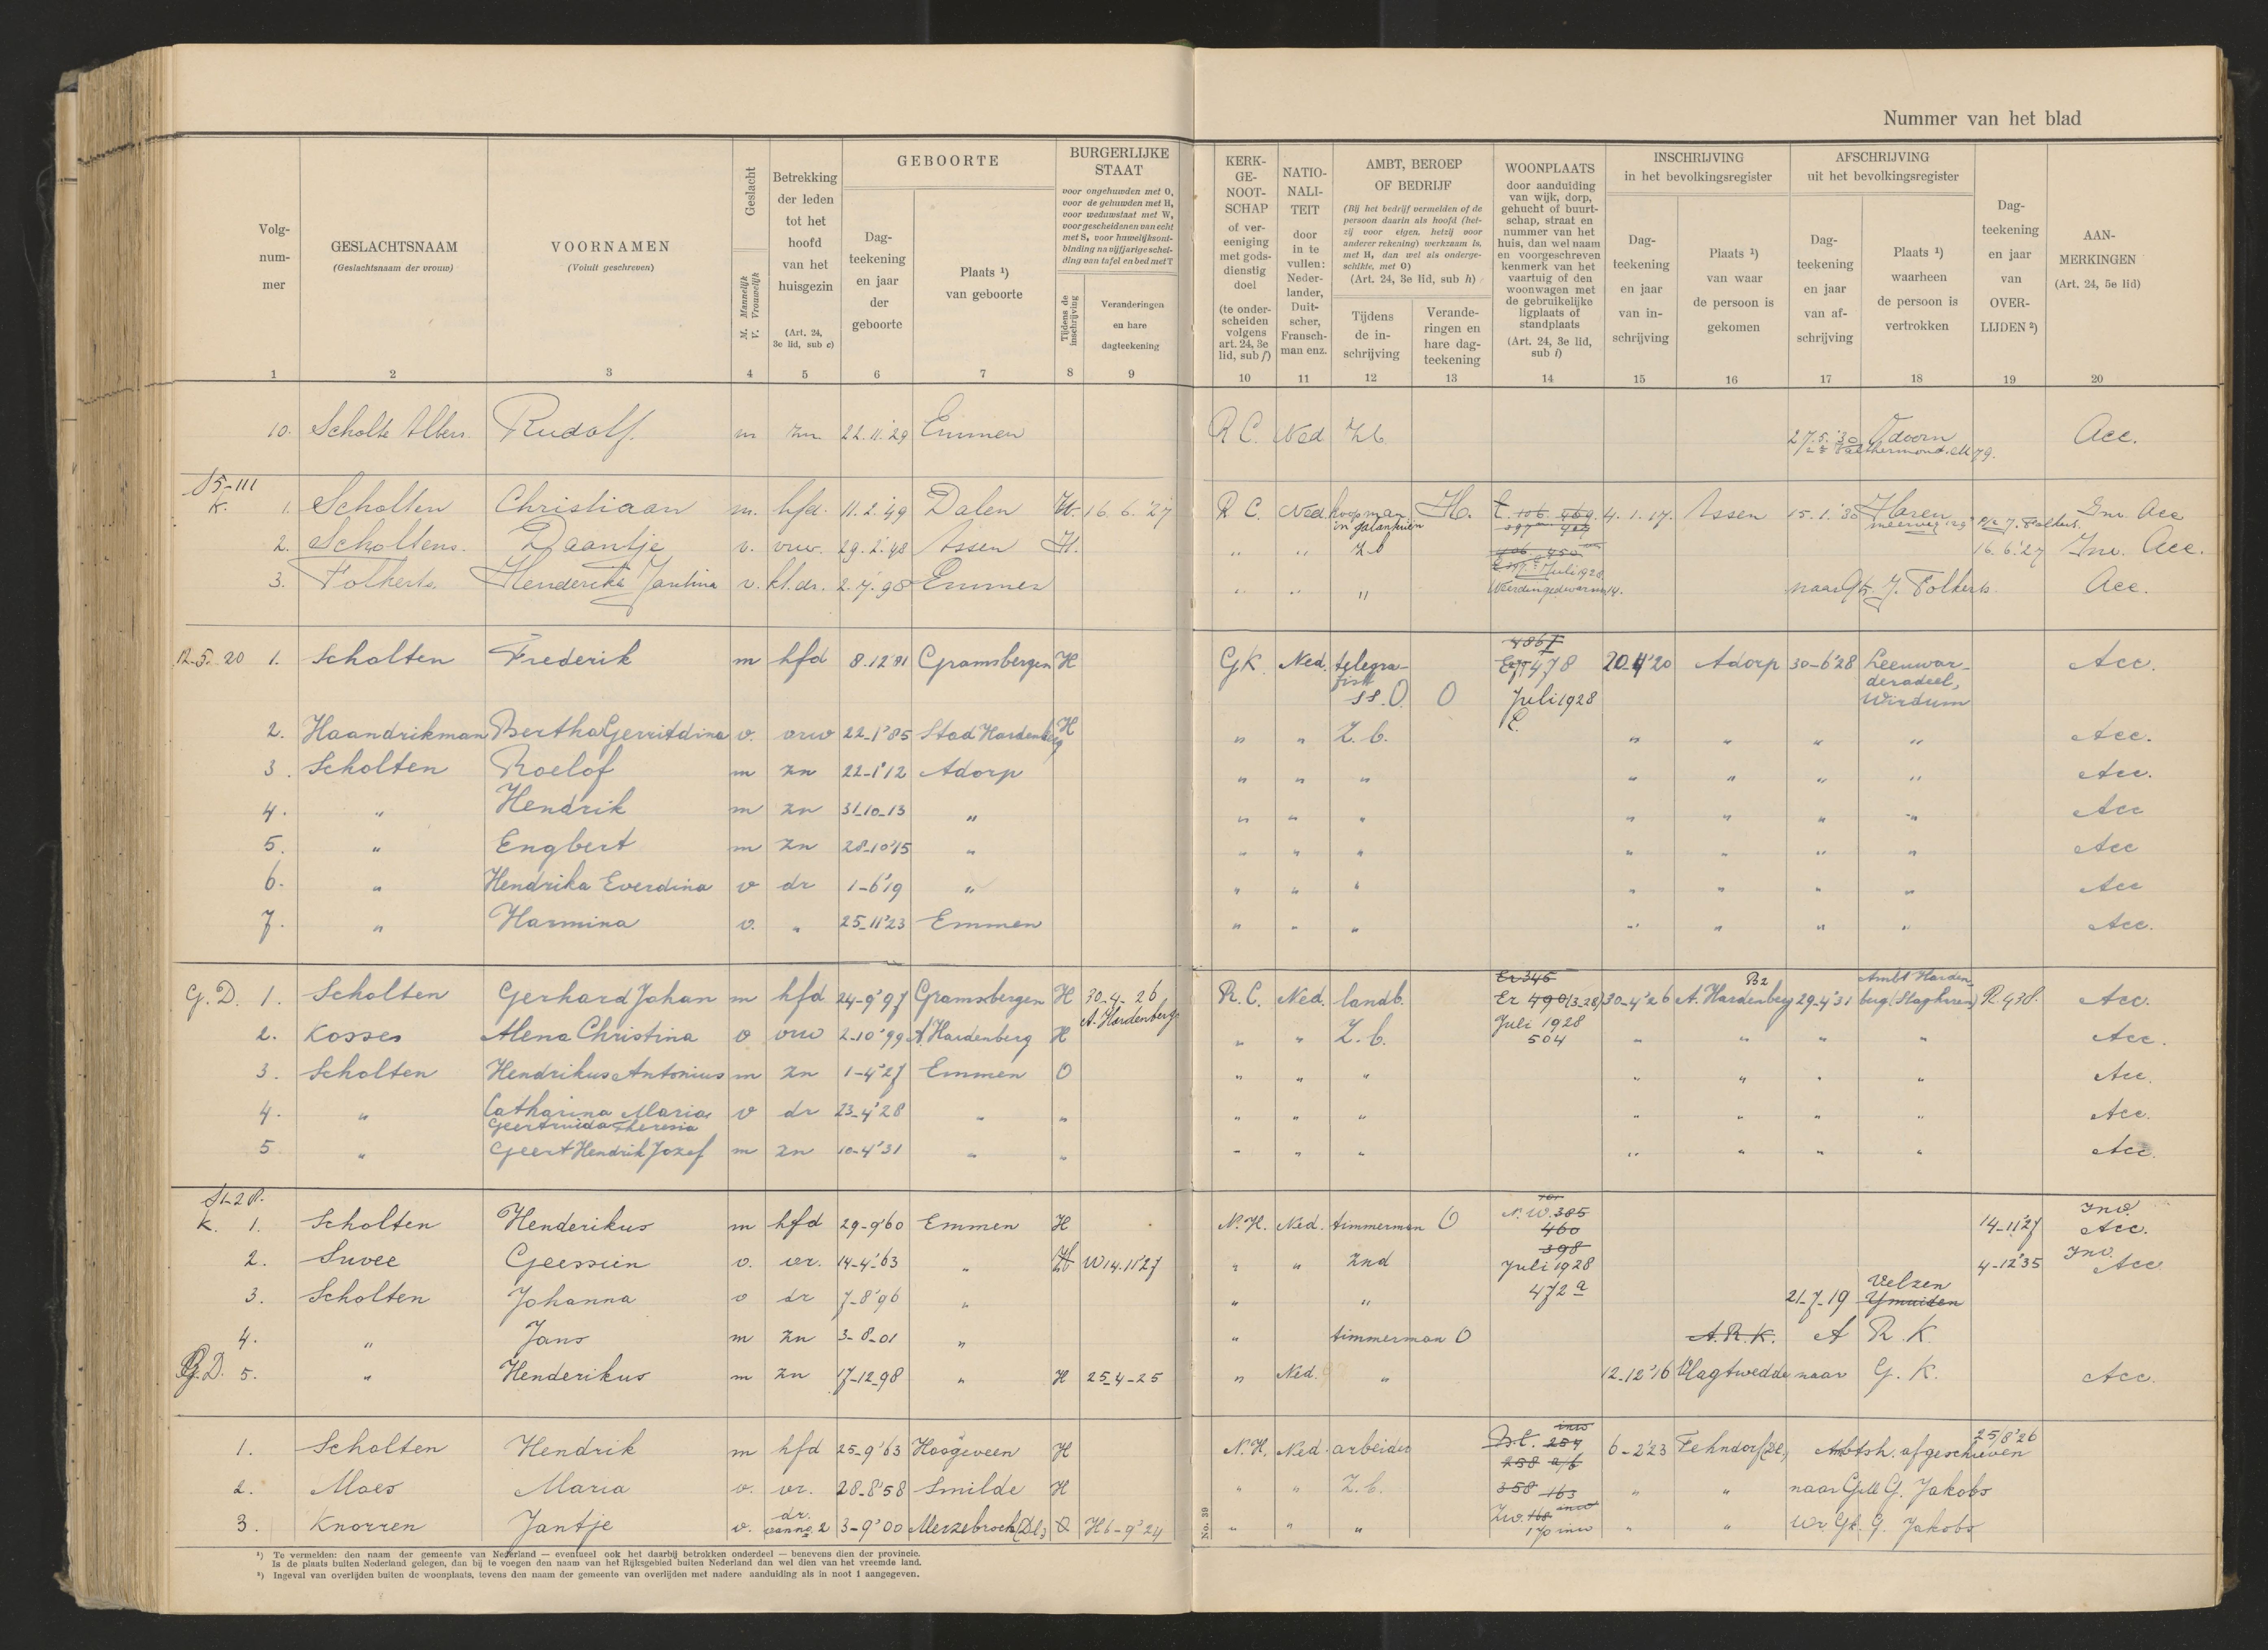 Nummer van het blad
Volg-
num-
mer
GESLACHTSNAAM
(Geslachtsnaam der vrouw)
VOORNAMEN
(Voluit geschreven)
Geslacht
M. Mannelijk
V. Vrouwelijk
Betrekking
der leden
tot het
hoofd
van het
huisgezin
(Art. 24,
3e lid, sub c)
GEBOORTE
Dag-
teekening
en jaar
der
geboorte
Plaats ¹)
van geboorte
BURGERLIJKE
STAAT
voor ongehuwden met O,
voor de gehuwden met H,
voor weduwstaat met W,
voor gescheidenen van echt
met S, voor huwelijksont-
binding na vijfjarige schei-
ding van tafel en bed met T
Tijdens de
inschrijving
Veranderingen
en hare
dagteekening
KERK-
GE-
NOOT-
SCHAP
of ver-
eeniging
met gods-
dienstig
doel
(te onder-
scheiden
volgens
art. 24, 3e
lid, sub f)
NATIO-
NALI-
TEIT
door
in te
vullen:
Neder-
lander,
Duit-
scher,
Fransch-
man enz.
AMBT, BEROEP
OF BEDRIJF
(Bij het bedrijf vermelden of de
persoon daarin als hoofd (het-
zij voor eigen, hetzij voor
anderer rekening) werkzaam is,
met H, dan wel als onderge-
schikte, met O)
(Art. 24, 3e lid, sub h)
Tijdens
de in-
schrijving
Verande-
ringen en
hare dag-
teekening
WOONPLAATS
door aanduiding
van wijk, dorp,
gehucht of buurt-
schap, straat en
nummer van het
huis, dan wel naam
en voorgeschreven
kenmerk van het
vaartuig of den
woonwagen met
de gebruikelijke
ligplaats of
standplaats
(Art. 24, 3e lid,
sub i)
INSCHRIJVING
in het bevolkingsregister
Dag-
teekening
en jaar
van in-
schrijving
Plaats ¹)
van waar
de persoon is
gekomen
AFSCHRIJVING
uit het bevolkingsregister
Dag-
teekening
en jaar
van af-
schrijving
Plaats ¹)
waarheen
de persoon is
vertrokken
Dag-
teekening
en jaar
van
OVER-
LIJDEN ²)
AAN-
MERKINGEN
(Art. 24, 5e lid)
1 2 3 4 5 6 7 8 9 10 11 12 13 14 15 16 17 18 19 20
10. Scholte Albers Rudolf m zn 22.11.'29 Emmen R C. Ned Z.b. 27.5.'30 Odoorn Acc.
Valthermond 79.
K. 1. Scholten Christiaan m. hfd. 11.2.'49 Dalen H. 16.6.'27 R C. Ned koopman H. 4.1.17. Assen 15.1.'30 Haren Inv. Acc
in galanterien
2. Scholtens Daantje v. vrw. 29.2.'48 Assen H. " " Z.b 16.6.'27 Inv. Acc.
3. Folkerts Hendericka Jantina v. kl.dr. 2.7.98 Emmen " " " naar Gk J. Folkerts Acc.
Juli 1928
12-5-20 1. Scholten Frederik m hfd 8.12'81 Gramsbergen H GK Ned. telegra- 478 20-4'20 Adorp 30-6'28 Leeuwar- Acc.
fist deradeel,
ss. O. O Juli 1928 Wirdum
2. Haandrikman Bertha Gerritdina v. vrw 22-1'85 Stad Hardenberg H " " Z.b. " " " " Acc.
3. Scholten Roelof m zn 22-1'12 Adorp " " " " " " " Acc.
4. " Hendrik m zn 31-10-13 " " " " " " " " Acc
5. " Engbert m zn 28-10'15 " " " " " " " " Acc
6. " Hendrika Everdina v dr 1-6'19 " " " " " " " " Acc
7. " Harmina v. " 25-11'23 Emmen " " " " " " " Acc.
G.D. 1. Scholten Gerhard Johan m hfd 24-9'97 Gramsbergen H 30-4-26 R.C. Ned. landb. Er 345 30-4'26 A. Hardenberg 29-4'31 Ambt Harden-
A. Hardenberg Er 490 (3-28) berg (Slagharen) R 438. Acc.
2. Kosses Alena Christina v vrw 2-10'99 A. Hardenberg H " " Z.b. Juli 1928 " " " " Acc.
504
3. Scholten Hendrikus Antonius m zn 1-4'27 Emmen O " " " " " " " Acc.
4. " Catharina Maria v dr 23-4'28 " " " " " " " " " Acc.
Geertruida Theresia
5 " Geert Hendrik Jozef m zn 10-4'31 " " " " " " " " " Acc.
K. 1. Scholten Henderikus m hfd 29-9'60 Emmen H N.H. Ned. timmerman O N.W. 385 14-11'27 Inv. Acc.
460
398
2. Suvee Geessien v. vr. 14-4-'63 " H W 14.11'27 " " znd Juli 1928 4-12'35 Inv. Acc
3. Scholten Johanna v dr 7-8'96 " " " 472 a 21-7-19 Velzen
Ymuiden
4. " Jans m zn 3-8-01 " " timmerman O A.R.K. A R.K.
G.D. 5. " Henderikus m zn 17-12-98 " H 25-4-25 " Ned. " 12-12'16 Vlagtwedde naar G.K. Acc.
1. Scholten Hendrik m hfd 25-9'63 Hoogeveen H N.H. Ned. arbeider 6-2'23 Fehndorf(Dl) Ambtsh. afgeschreven 25/8'26
2. Moes Maria v. vr. 28-8'58 Smilde H " " Z.b. 358 163 " " naar G. Jakobs
3. Knorren Jantje v. dr. 3-9'00 H 6-9'24 " " " 170 inw " " G. Jakobs
No. 39
¹) Te vermelden: den naam der gemeente van Nederland — eventueel ook het daarbij betrokken onderdeel — benevens dien der provincie.
Is de plaats buiten Nederland gelegen, dan bij te voegen den naam van het Rijksgebied buiten Nederland dan wel dien van het vreemde land.
²) Ingeval van overlijden buiten de woonplaats, tevens den naam der gemeente van overlijden met nadere aanduiding als in noot 1 aangegeven.